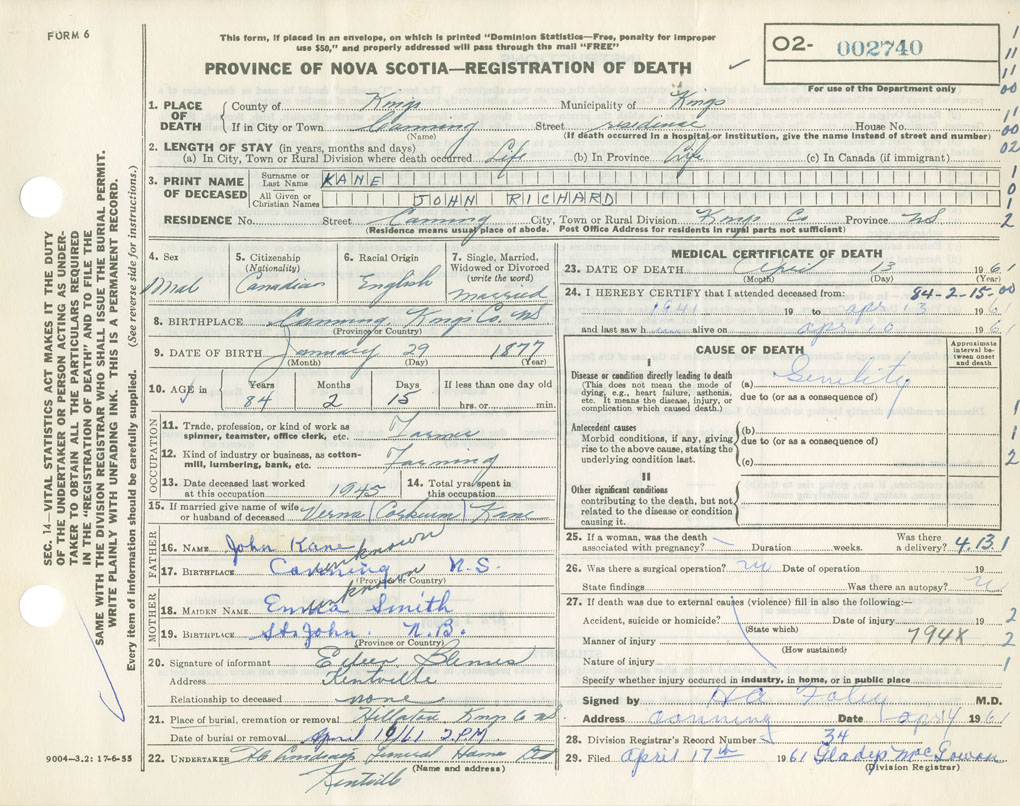 FORM 6
This form, if placed in an envelope, on which is printed "Dominion Statistics—Free, penalty for improper
use $50," and properly addressed will pass through the mail "FREE"
PROVINCE OF NOVA SCOTIA—REGISTRATION OF DEATH
O2- 002740
For use of the Department only
SEC. 14—VITAL STATISTICS ACT MAKES IT THE DUTY
OF THE UNDERTAKER OR PERSON ACTING AS UNDER-
TAKER TO OBTAIN ALL THE PARTICULARS REQUIRED
IN THE "REGISTRATION OF DEATH" AND TO FILE THE
SAME WITH THE DIVISION REGISTRAR WHO SHALL ISSUE THE BURIAL PERMIT.
WRITE PLAINLY WITH UNFADING INK. THIS IS A PERMANENT RECORD.
Every item of information should be carefully supplied. (See reverse side for instructions.)
1. PLACE OF DEATH County of Kings Municipality of Kings
If in City or Town Canning Street residence House No.
(Name) (If death occurred in a hospital or institution, give the name instead of street and number)
2. LENGTH OF STAY (in years, months and days)
(a) In City, Town or Rural Division where death occurred Life (b) In Province Life (c) In Canada (if immigrant)
3. PRINT NAME OF DECEASED Surname or Last Name KANE
All Given or Christian Names JOHN RICHARD
RESIDENCE No. Street Canning City, Town or Rural Division Kings Co Province NS
(Residence means usual place of abode. Post Office Address for residents in rural parts not sufficient)
4. Sex Male
5. Citizenship (Nationality) Canadian
6. Racial Origin English
7. Single, Married, Widowed or Divorced (write the word) Married
8. BIRTHPLACE Canning, Kings Co. NS
(Province or Country)
9. DATE OF BIRTH January 29 1877
(Month) (Day) (Year)
10. AGE in Years 84 Months 2 Days 15 If less than one day old hrs. or min.
OCCUPATION
11. Trade, profession, or kind of work as spinner, teamster, office clerk, etc. Farmer
12. Kind of industry or business, as cotton-mill, lumbering, bank, etc. Farming
13. Date deceased last worked at this occupation 1945 14. Total yrs. spent in this occupation
15. If married give name of wife or husband of deceased Verna Kane
FATHER
16. NAME John Kane unknown
17. BIRTHPLACE Canning N.S.
(Province or Country)
unknown
MOTHER
18. MAIDEN NAME Emma Smith
19. BIRTHPLACE St. John. N.B.
(Province or Country)
20. Signature of informant
Address Kentville
Relationship to deceased none
21. Place of burial, cremation or removal Hillaton Kings Co NS
Date of burial or removal April 16/61 2 P.M
22. UNDERTAKER Funeral Home Ltd
Kentville (Name and address)
9004—3.2: 17-6-55
MEDICAL CERTIFICATE OF DEATH
23. DATE OF DEATH April 13 1961
(Month) (Day) (Year)
24. I HEREBY CERTIFY that I attended deceased from: 84-2-15-00
1941 19 to apr 13 196
and last saw h alive on apr 10 1961
CAUSE OF DEATH
Approximate interval between onset and death
I
Disease or condition directly leading to death
(This does not mean the mode of dying, e.g., heart failure, asthenia, etc. It means the disease, injury, or complication which caused death.)
(a) Senility
due to (or as a consequence of)
Antecedent causes
Morbid conditions, if any, giving rise to the above cause, stating the underlying condition last.
(b)
due to (or as a consequence of)
(c)
II
Other significant conditions
contributing to the death, but not related to the disease or condition causing it.
25. If a woman, was the death associated with pregnancy? Duration weeks. Was there a delivery? 4.13.1
26. Was there a surgical operation? no Date of operation 19
State findings Was there an autopsy?
27. If death was due to external causes (violence) fill in also the following:—
Accident, suicide or homicide? Date of injury 19
(State which)
Manner of injury 794X
(How sustained)
Nature of injury
Specify whether injury occurred in industry, in home, or in public place
Signed by H A Foley M.D.
Address Canning Date apr 14 1961
28. Division Registrar's Record Number 34
29. Filed April 17th 1961 Gladys McGowan
(Division Registrar)